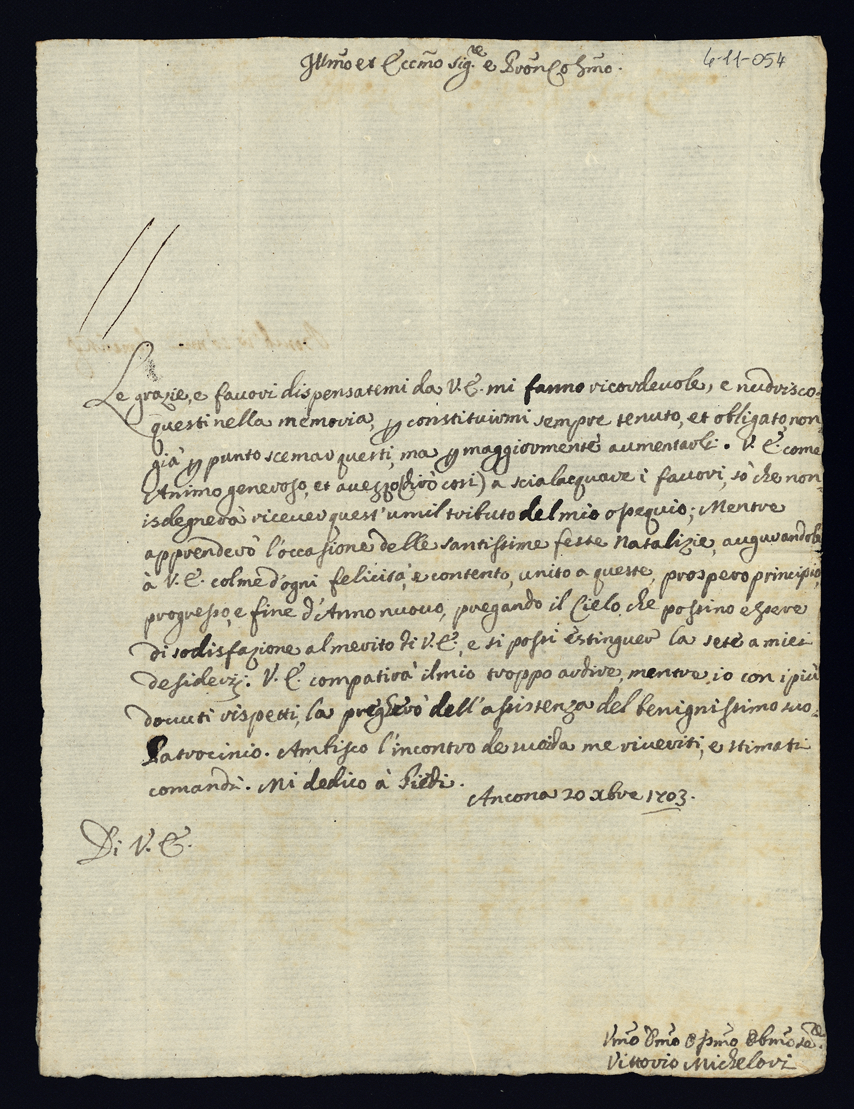 Illmo et Eccmo Sigre e Pron Colmo.
4-11-054
Le grazie, e favori dispensatemi da V. E. mi fanno ricordevole, e nudrisco
questi nella memoria, p constituirmi sempre tenuto, et obligato, non
già p punto scemar questi, ma p maggiormente aumentarli. V. E. come
Animo generoso, et avezzo (dirò così) a scialacquare i favori, sò che non
isdegnerà ricever quest'umil tributo del mio ossequio; Mentre
apprenderò l'occasione delle santissime feste Natalizie, augurandole
à V. E. colme d'ogni felicità, e contento, unito a queste, prospero principio,
progresso, e fine d'Anno nuovo, pregando il Cielo, che possino essere
di sodisfazione al merito di V. E., e si possi estinguer la sete a miei
desiderij. V. E. compatirà il mio troppo ardire, mentre io con i più
dovuti rispetti, la pregherò dell'assistenza del benignissimo suo
Patrocinio. Ambisco l'incontro de suoi da me riveriti, e stimati
comandi. Mi dedico à Piedi.
Ancona 20 Xbre 1703.
Di V. E.
Vmo Dmo Ossmo Obmo Se
Vittorio Michelori